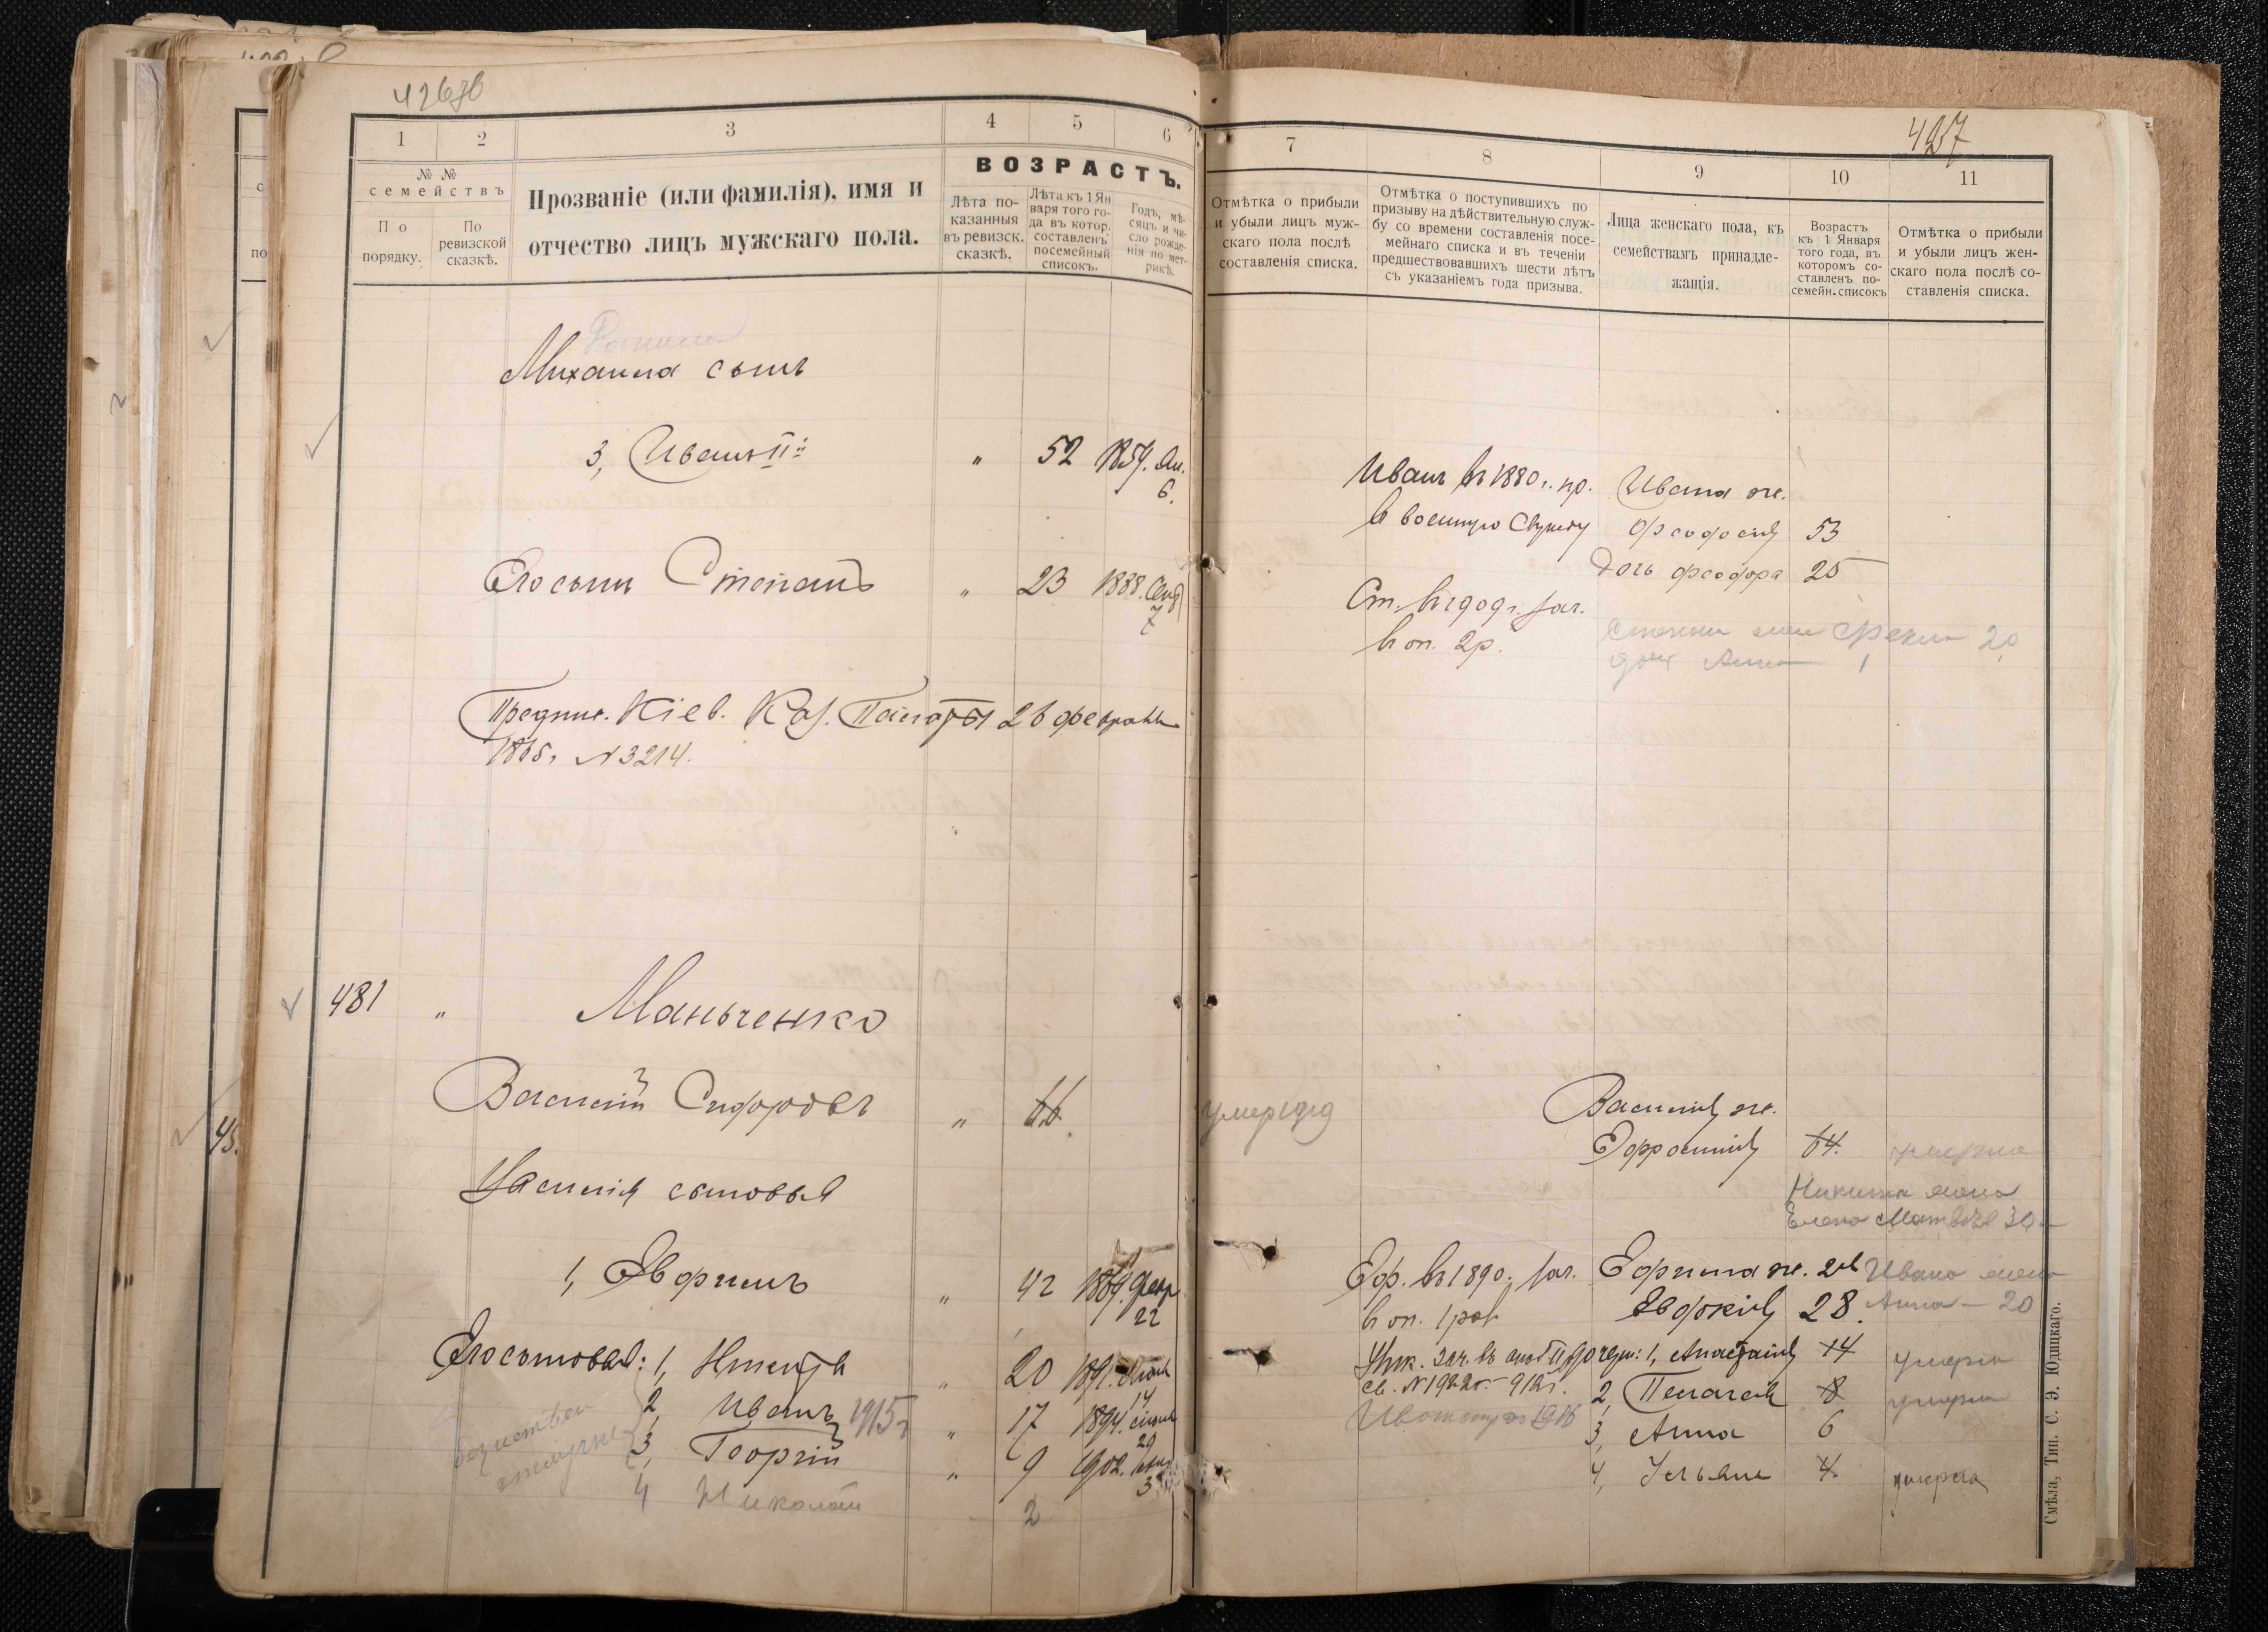 426об
427
1
2
3
4
5
6
№ №
семействъ
По порядку.
По ревизской сказкѣ.
Прозваніе (или фамилія), имя и
отчество лицъ мужскаго пола.
ВОЗРАСТЪ.
Лѣта по-
казанныя
въ ревизск.
сказкѣ.
Лѣта къ 1 Ян
варя того го-
да въ котор.
составленъ
посемейный
списокъ.
Годъ, мѣ-
сяцъ и чи-
сло рожде-
нія по мет-
рикѣ.
Михаила сынъ
3, Иванъ II й " 52 1859. Ян.
6.
Его сынъ Степанъ " 23 1888.
7
Предпис. Кіев. Каз. Палаты 26 февраля
N 3214.
481 " Маньченко
Василій Сидоровъ " 66
Василія сыновья
1, Ефримъ " 42 1869. Февр
22
Его сыновья: 1, Никита " 20 1891.
14
2, Иванъ 1915 г " 17 1894.
29
3, Георгій " 9 1902.
3
4 Николай 2
7
8
9
10
11
Отмѣтка о прибыли
и убыли лицъ муж-
скаго пола послѣ
составленія списка.
Отмѣтка о поступившихъ по
призыву на дѣйствительную служ-
бу со времени составленія посе-
мейнаго списка и въ теченіи
предшествовавшихъ шести лѣтъ
съ указаніемъ года призыва.
Лица женскаго пола, къ
семействамъ принадле-
жащія.
Возрастъ
къ 1 Января
того года, въ
которомъ со-
ставленъ по-
семейн. списокъ
Отмѣтка о прибыли
и убыли лицъ жен-
скаго пола послѣ со-
ставленія списка.
Иванъ въ 1880 г. пр. Ивана ж.
в военную службу Феодосія 53
Дочь Феодора 25
Ст. въ 1909 г. зач.
в оп. 2 р.
Степана жена Фекла 20
дочь Анна 1
умеръ 1919
Василія ж.
Ефросинія 64. умерла
Никита жена
Елена 30
Еф. въ 1890 г. зач. Ефрима ж. 2я Ивана жена
в оп. 1 раз. Евдокія 28. Анна - 20
Ник. зач. въ дочери: 1, Анастасія 14 умерла
св. N 1922 912 г. 2, Пелагея 8 умерла
3, Анна 6
4, Ульяна 4. умерла
Смѣла, Тип. С. Э. Юдицкаго.